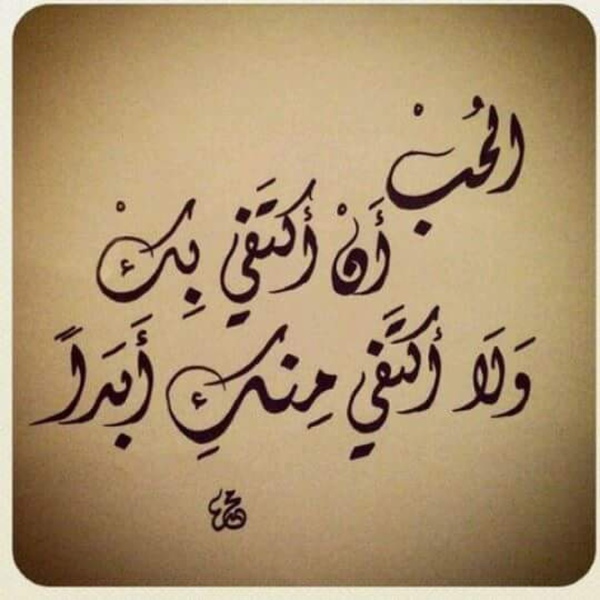 الحُبْ
أَنْ أكتَفي بِكْ
وَلَا أكتَفَي مِنكِ أَبَداً